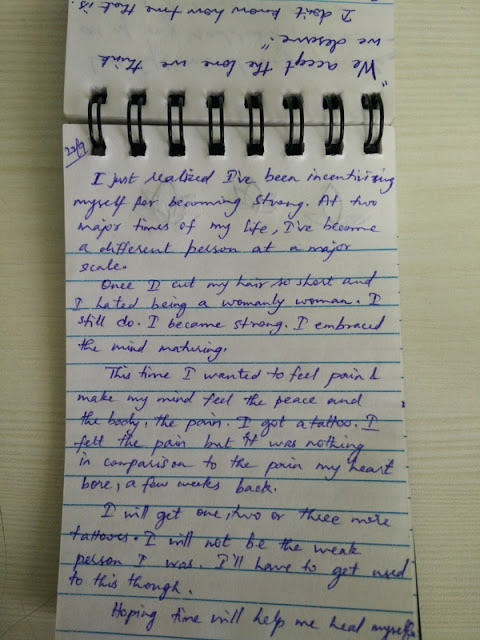 "We accept the love we think
we deserve."
I don't know how true that is.
22/9
I just realized I've been incentivizing
myself for becoming strong. At two
major times of my life, I've become
a different person at a major
scale.
Once I cut my hair so short and
I hated being a womanly woman. I
still do. I became strong. I embraced
the mind maturing.
This time I wanted to feel pain &
make my mind feel the peace and
the body, the pain. I got a tattoo. I
felt the pain but it was nothing
in comparison to the pain my heart
bore, a few weeks back.
I will get one, two or three more
tattoos. I will not be the weak
person I was. I'll have to get used
to this though.
Hoping time will help me heal myself.